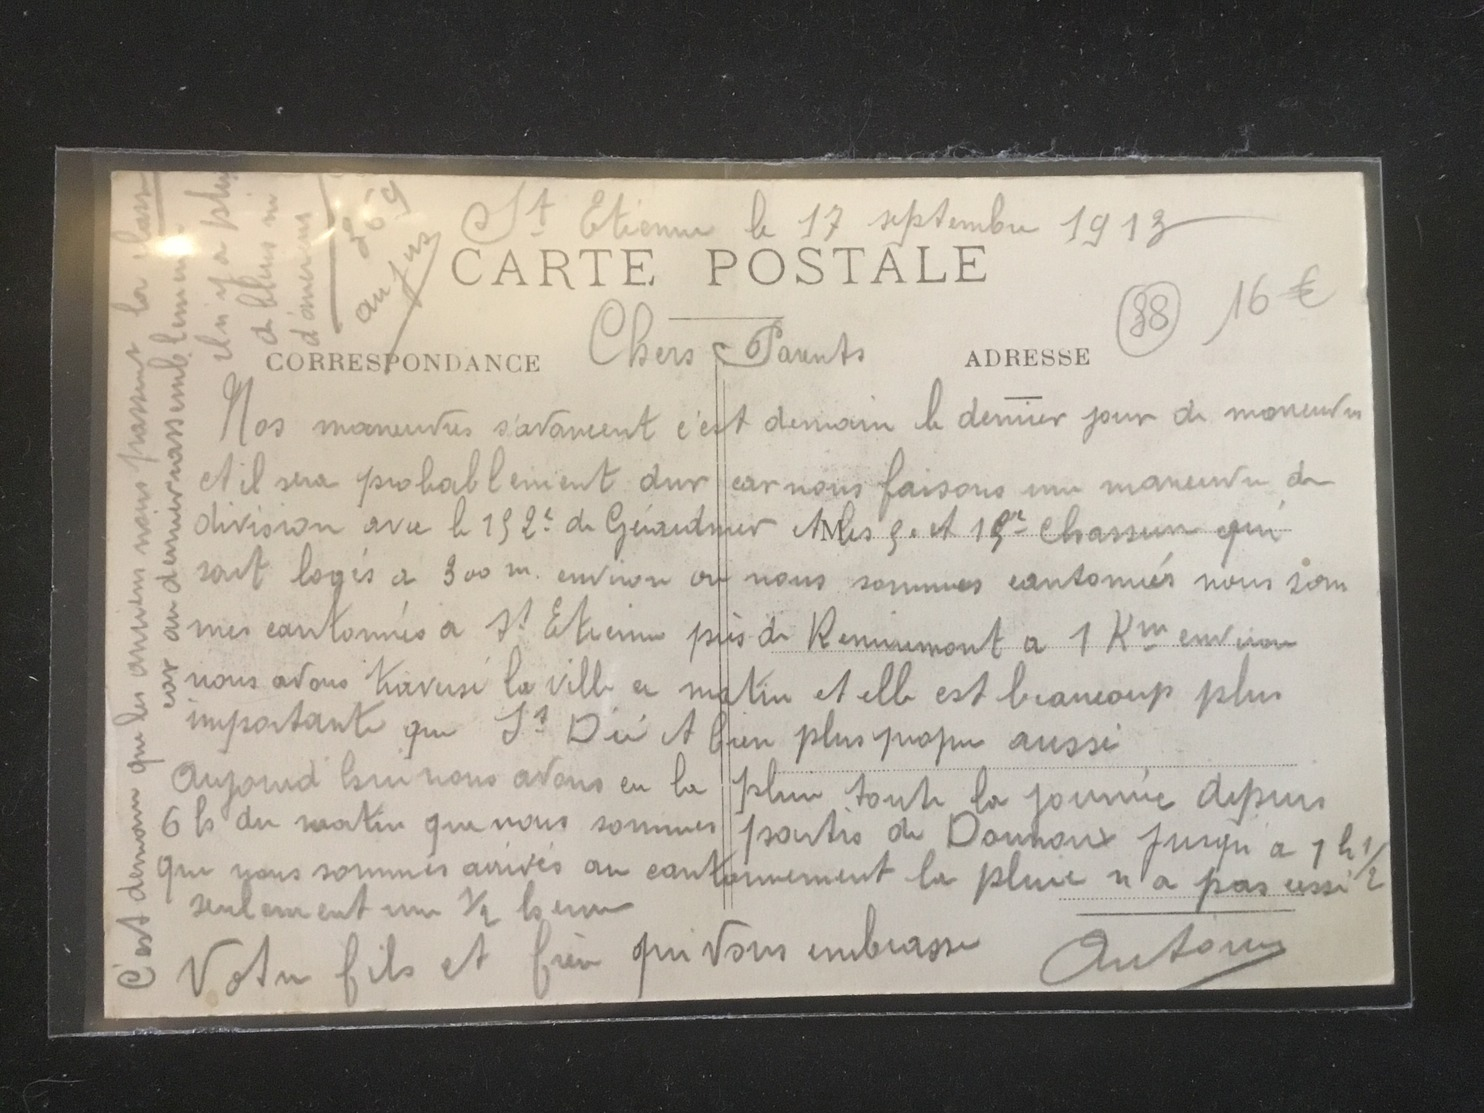 St Etienne le 17 septembre 1913
CARTE POSTALE
88
16 €
Chers Parents
CORRESPONDANCE
ADRESSE
Nos maneuvres s'avancent c'est demain le dernier jour de maneuvres
et il sera probablement dur car nous faisons une maneuvre de
division avec le 152e de Gérardmer et les 5. et 15e Chasseurs qui
sont logés a 300 m. environ ou nous sommes cantonnés nous som
mes cantonnés a St Etienne près de Remiremont a 1 Km environ
nous avons traversé la ville ce matin et elle est beaucoup plus
importante que St Dié et bien plus propre aussi
Aujourd'hui nous avons eu la pluie toute la journée depuis
6 h du matin que nous sommes partis de Dounoux jusqu'a 1 h 1/2
que nous sommes arrivés au cantonnement la pluie n'a pas cessé
seulement une 1/2 heure
Votre fils et frère qui vous embrasse
Antonin
C'est demain que les anciens nous passent la class
car au dernier rassemblement
il n'y a plus
de bleus ni
d'anciens